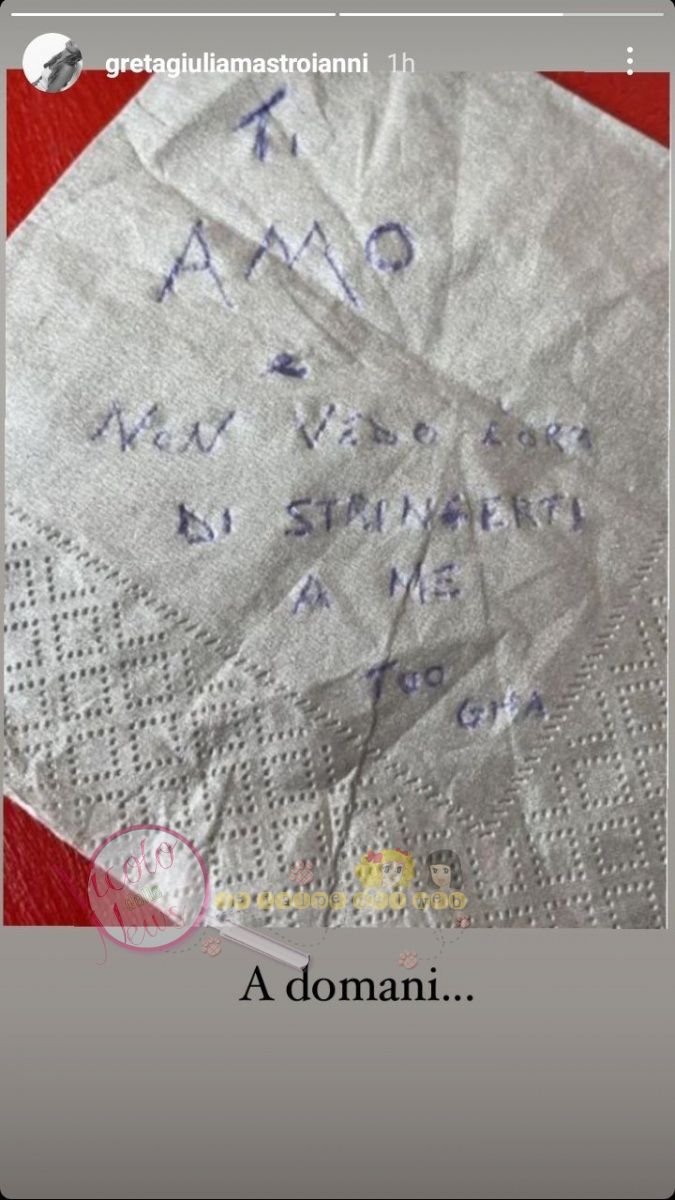 gretagiuliamastroianni 1h
TI
AMO
e
NON VEDO L'ORA
DI STRINGERTI
A ME
TUO
Nicolò
News
A domani...